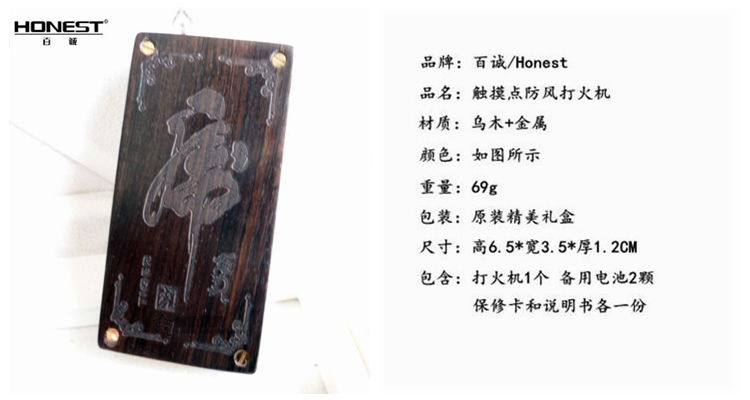 HONEST®
百诚
虎
TIGER
品牌：百诚/Honest
品名：触摸点防风打火机
材质：乌木+金属
颜色：如图所示
重量：69g
包装：原装精美礼盒
尺寸：高6.5*宽3.5*厚1.2CM
包含：打火机1个 备用电池2颗
保修卡和说明书各一份